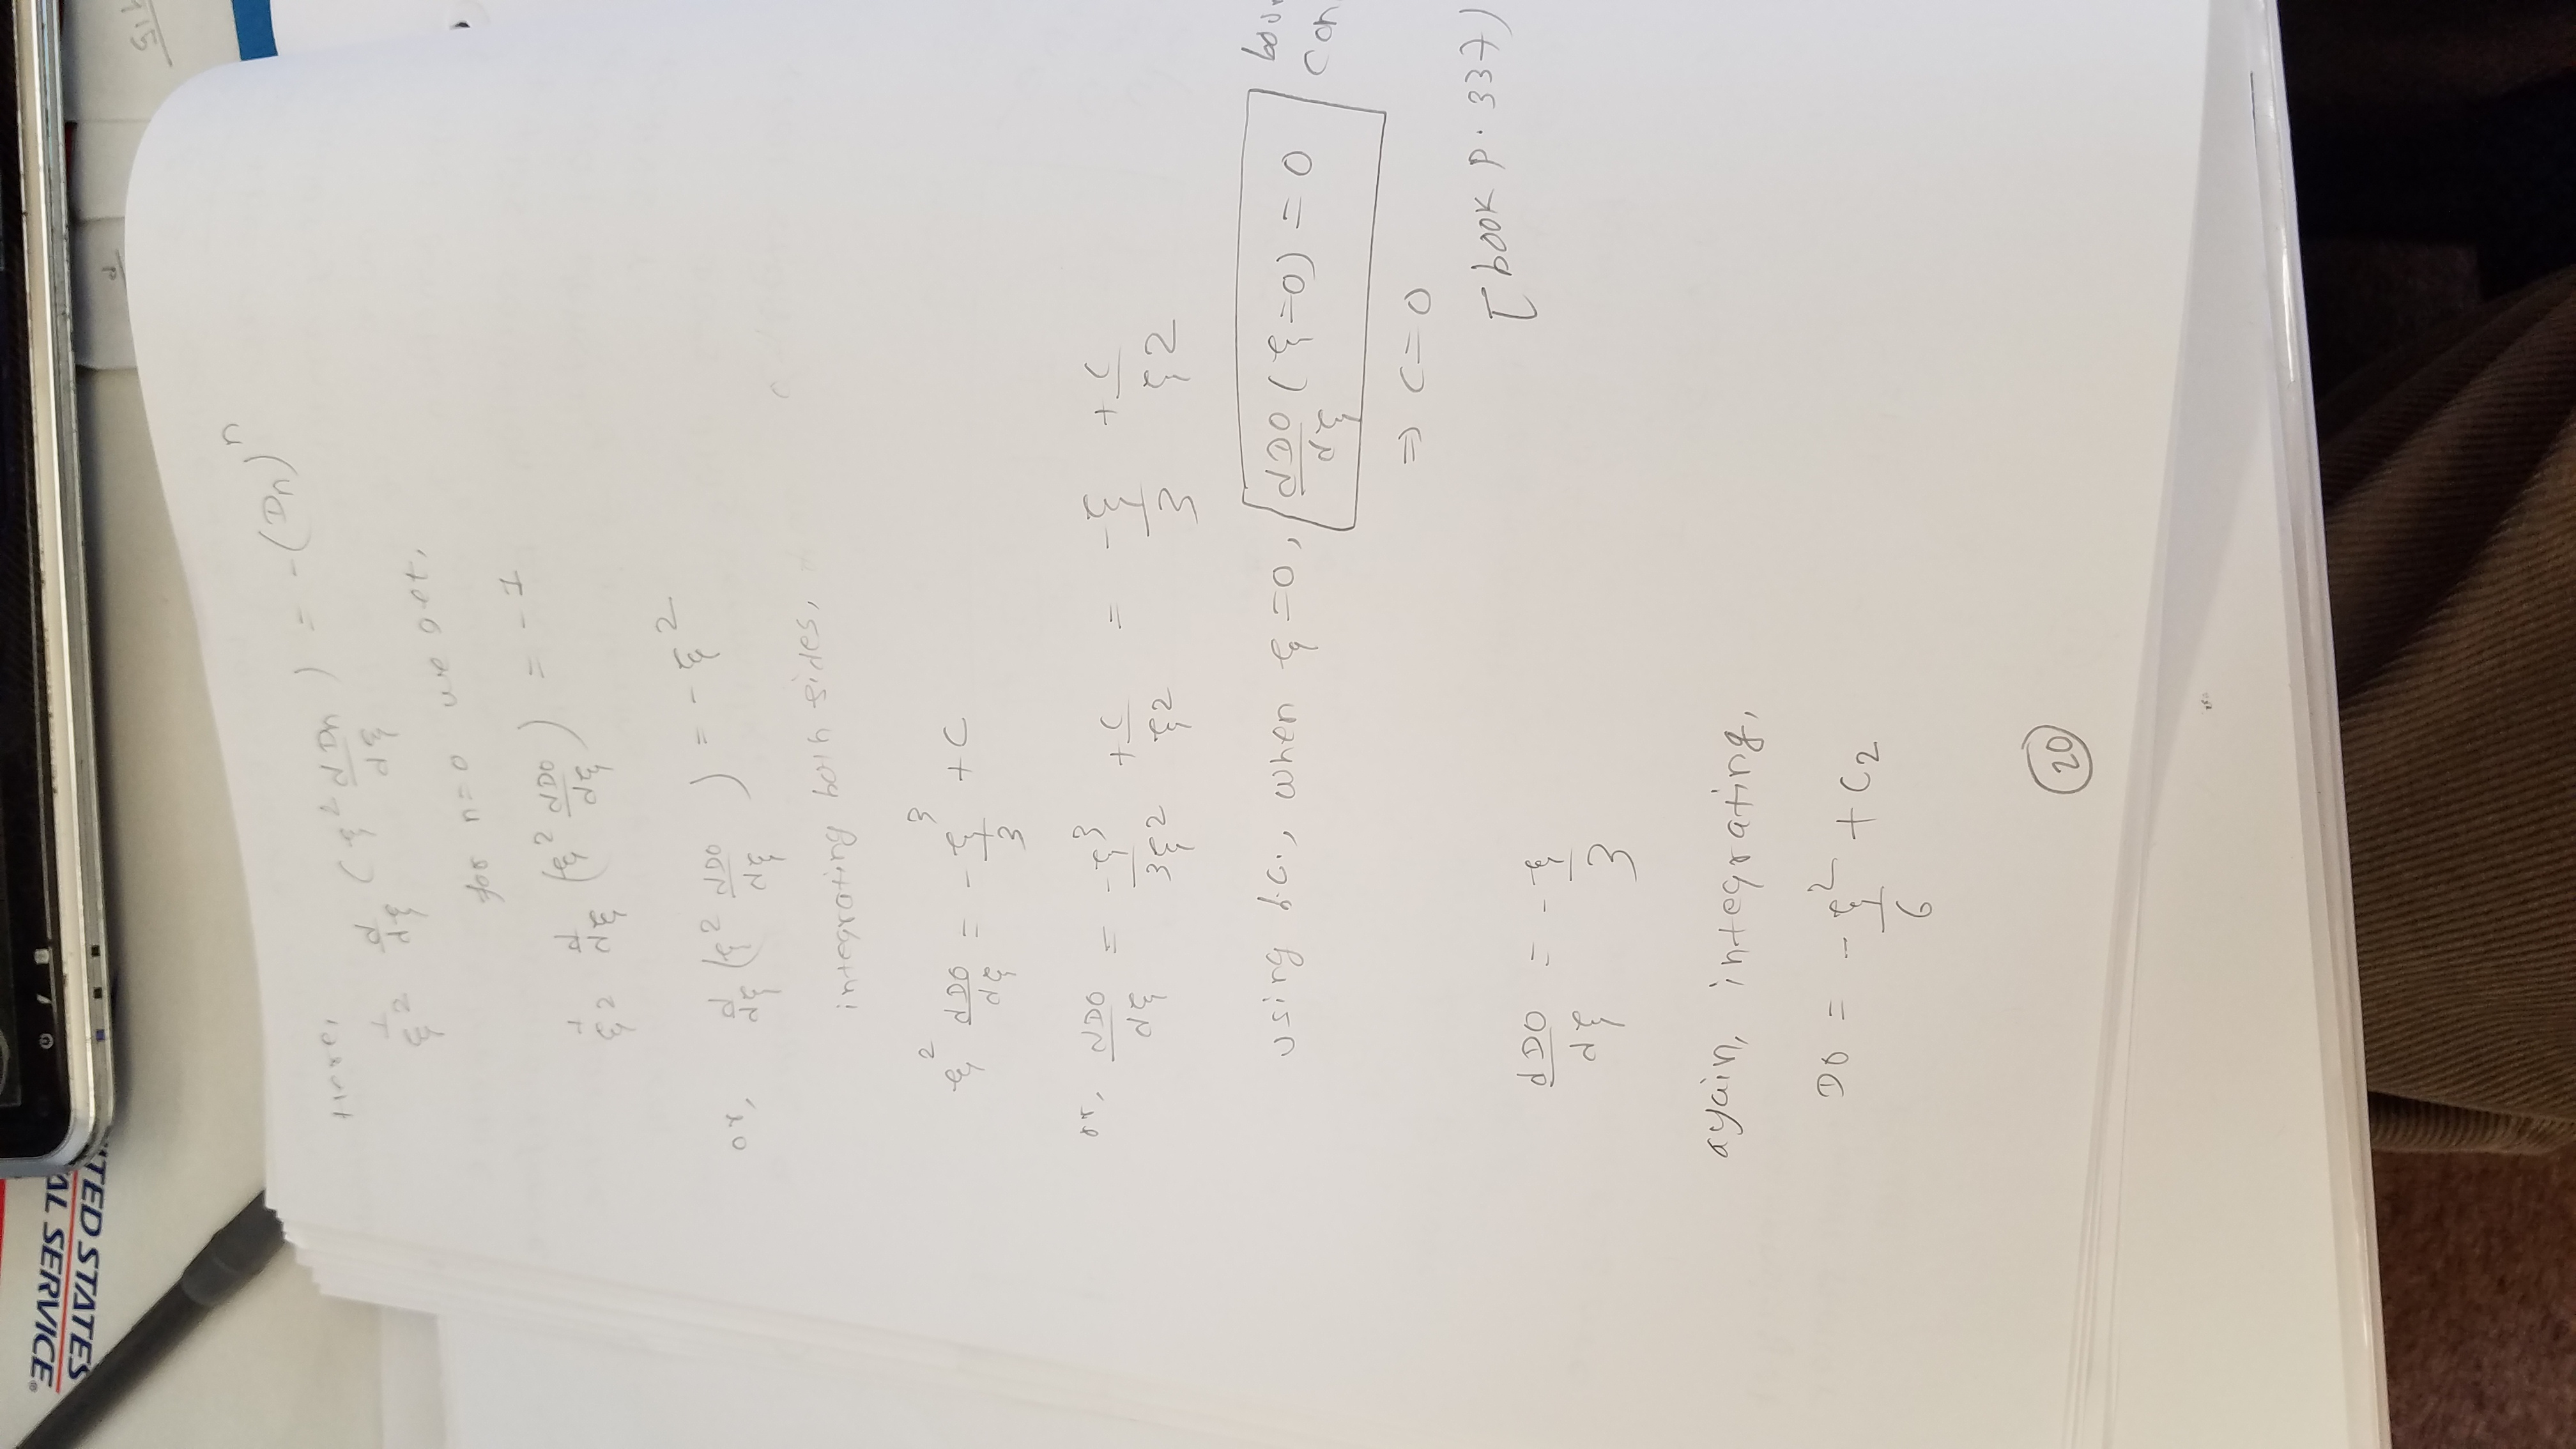 UNITED STATES
AL SERVICE®
Here,
1/ξ2 d/dξ (ξ² dDn/dξ) = -(Dn)ⁿ
for n=0 we get,
1/ξ2 d/dξ (ξ² dD0/dξ) = -1
or, d/dξ (ξ² dD0/dξ) = -ξ²
integrating both sides,
ξ² dD0/dξ = -ξ³/3 + C
or, dD0/dξ = -ξ³/3ξ2 + C/ξ2 = -ξ/3 + C/ξ2
using b.c., when ξ=0, dD0/dξ (ξ=0) = 0
⇒ C=0
[book p. 337)
dD0/dξ = -ξ/3
again, integrating,
D0 = -ξ²/6 + C2
20